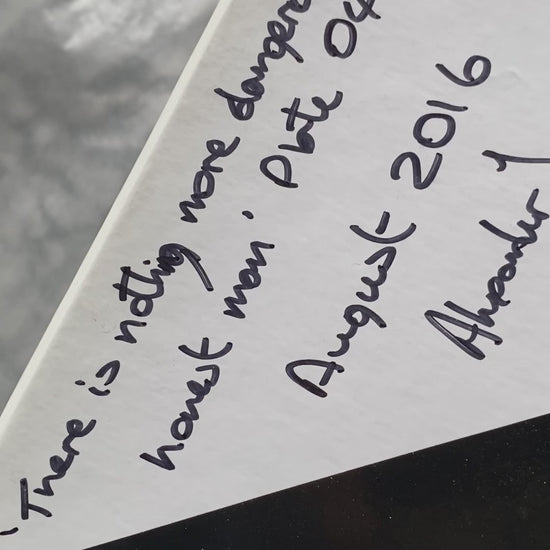 'There is nothing more danger
honest man.' Plate 04
August 2016
Alexander